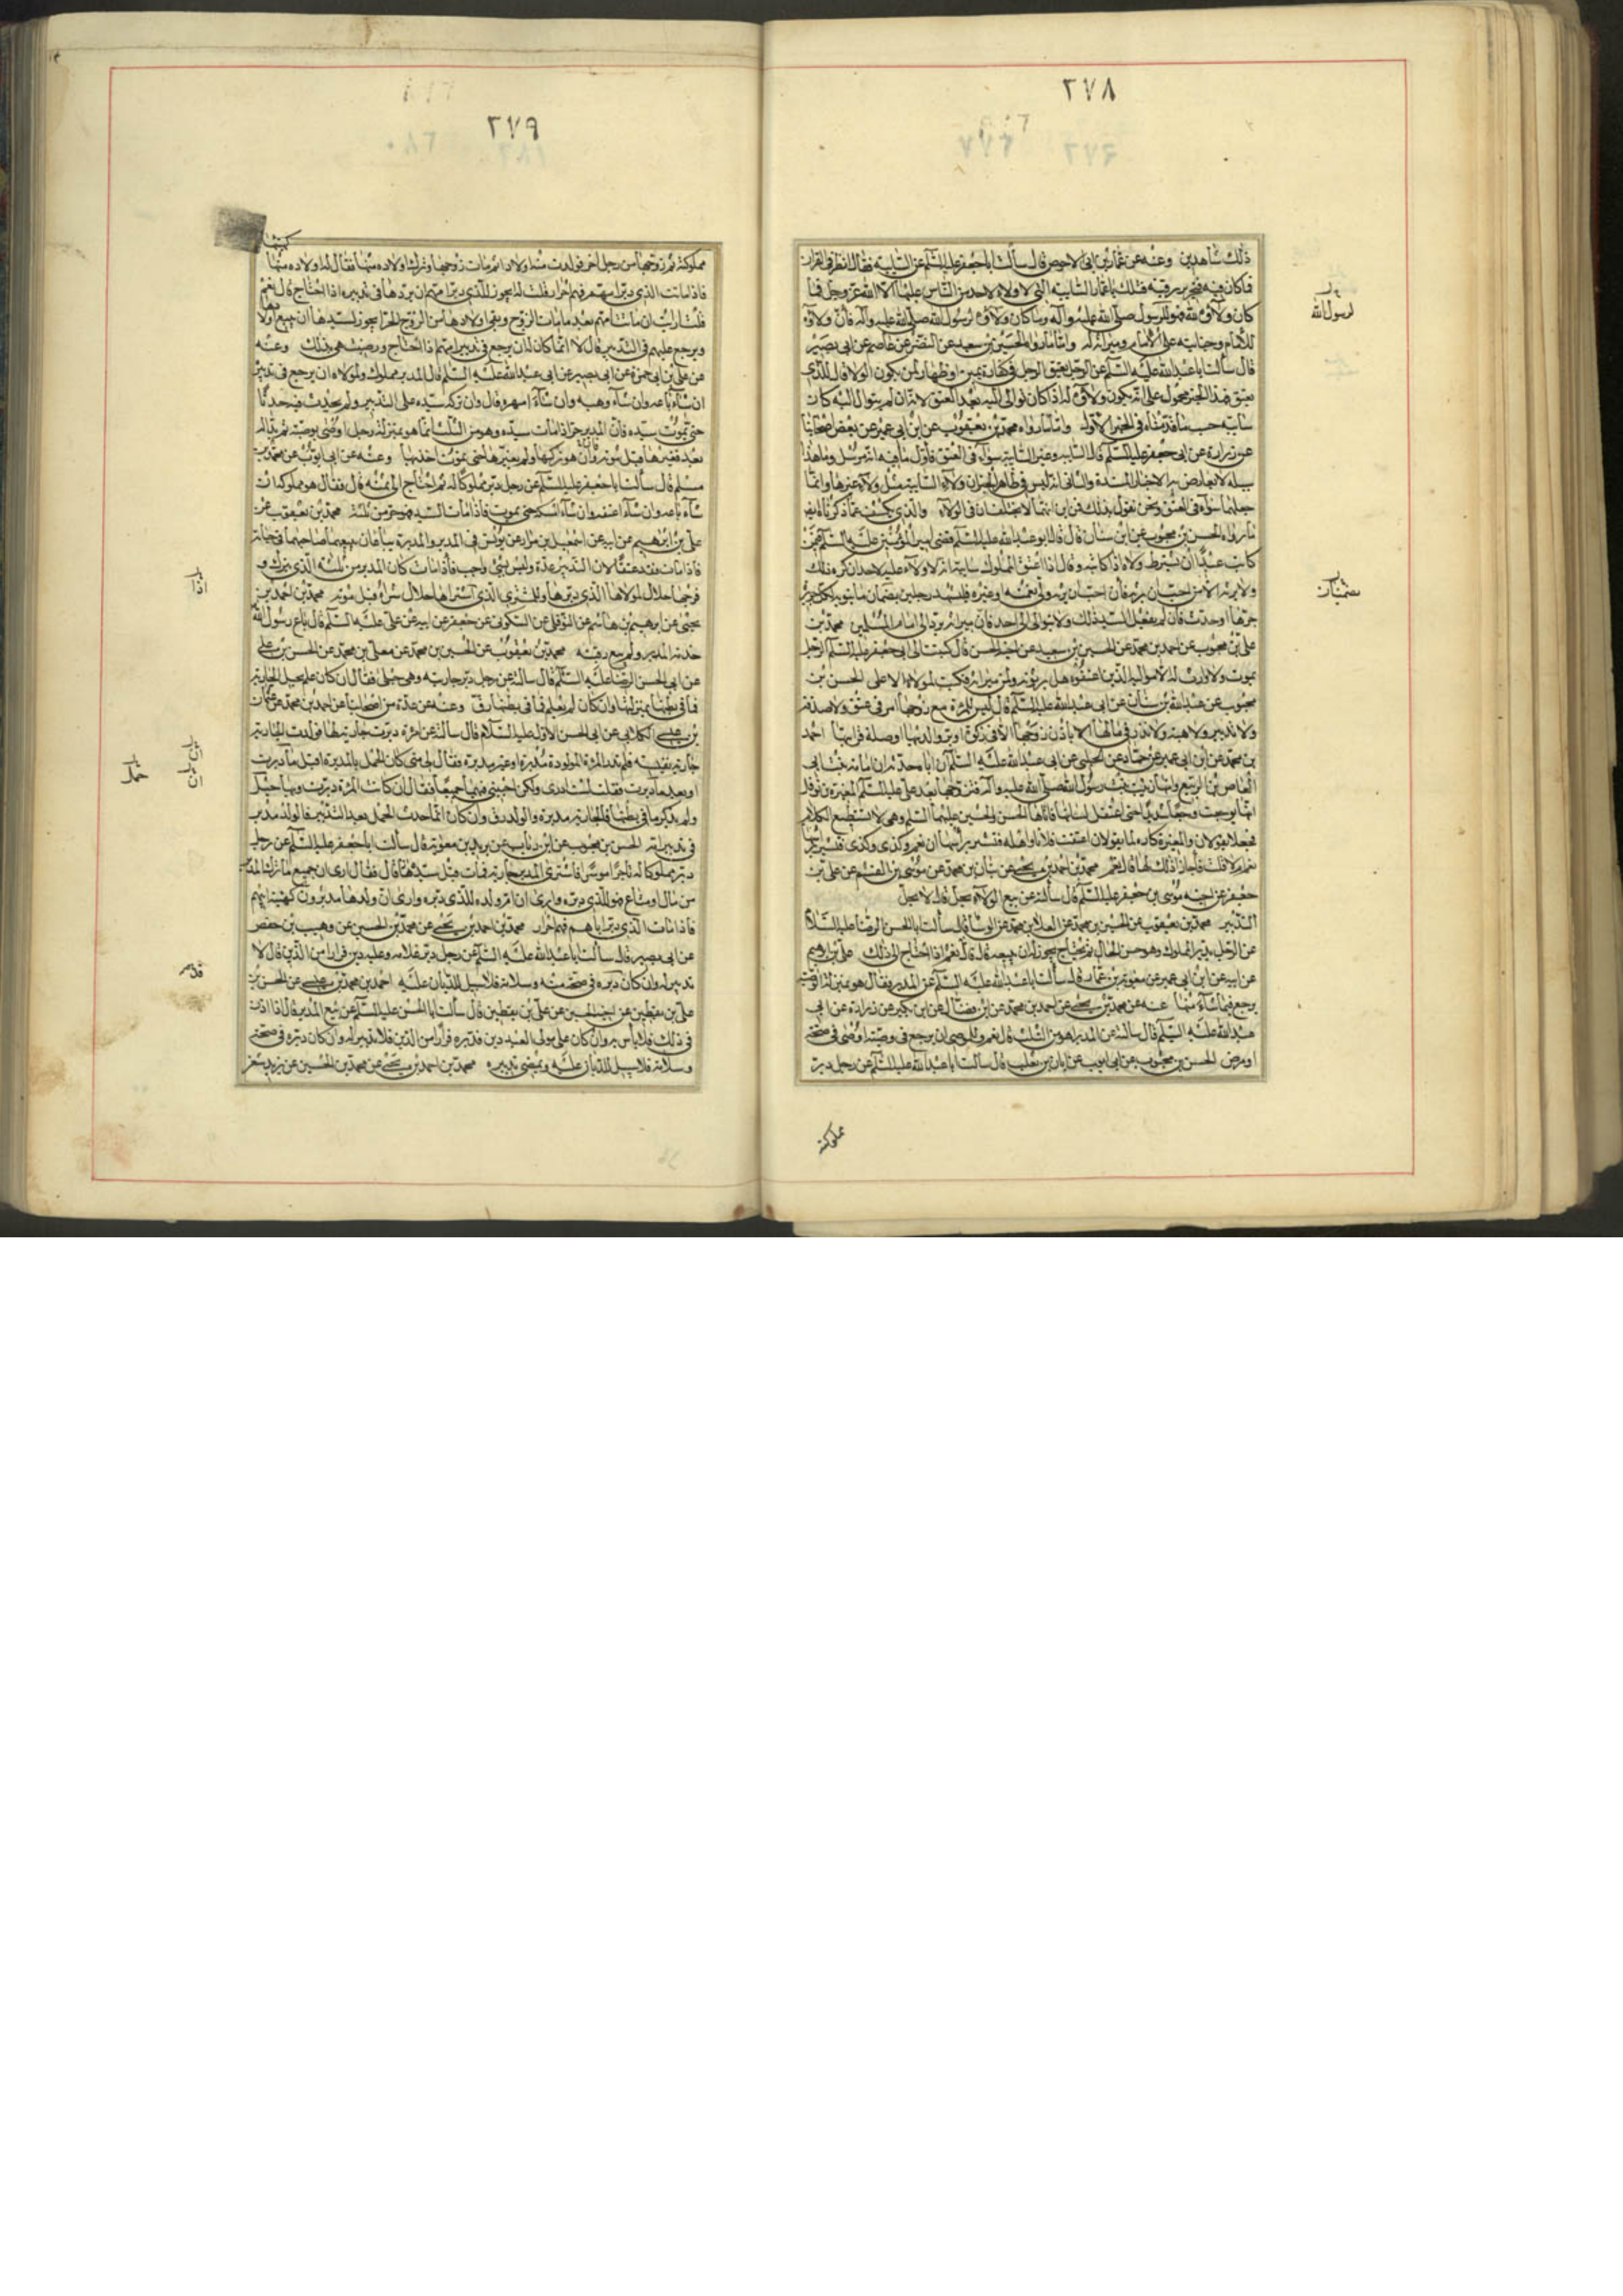 ٢٧٨
ذلك شاهدين وعنه عن عمار بن ابى الاحوص قال سألت ابا جعفر عليه السلم عن السايبة فقال انظر فى القران
فما كان فيه فتحرير رقبة فتلك يا عمار السايبة التى لا ولاء لاحد من الناس عليها الا الله عز وجل فما
كان ولاؤه لله فهو للرسول صلى الله عليه وآله وما كان ولاؤه لرسول الله صلى الله عليه وآله فان ولاؤه
للامام وجنايته على الامام وميراثه له واما ما رواه الحسين بن سعيد عن النضر عن عاصم عن ابى بصير
قال سألت ابا عبد الله عليه السلم عن الرجل يعتق الرجل فى كفارة يمين او ظهار لمن يكون الولا قال للذى
يعتق فهذا الخبر محمول على انه يكون ولاؤه له اذا كان توالى اليه بعد العتق لانه ان لم يتوال اليه كان
سايبة حسب ما قدمناه فى الخبر الاول واما ما رواه محمد بن يعقوب عن ابن ابى عمير عن بعض اصحابنا
عن زرارة عن ابى جعفر عليه السلم قال السايبة وغير السايبة سواء فى العتق فاول ما فيه انه مرسل وما هذا
سبيله لا يعارض به الاخبار المسندة والثانى انه ليس فى ظاهر الخبر ان ولاء السايبة مثل ولاء غيرها وانما
جعلهما سواء فى العتق ونحن نقول بذلك فمن اين انهما لا يختلفان فى الولاء والذى يكشف عما ذكرناه ايضا
ما رواه الحسن بن محبوب عن ابن سنان قال قال ابو عبد الله عليه السلم قضى امير المؤمنين عليه السلم فيمن
كاتب عبدا ان يشترط ولاه اذا كاتبه وقال اذا اعتق المملوك سايبة انه لا ولاء عليه لاحد ان كره ذلك
ولا يرثه الا من احب ان يرثه فان احب ان يرثه ولى نعمته او غيره فليشهد رجلين بضمان ما ينوبه لكل جريرة
جرها او حدث فان لم يفعل السيد ذلك ولا يتوالى الى احد فان ميراثه يرد الى امام المسلمين محمد بن
على بن محبوب عن احمد بن محمد عن الحسين بن سعيد عن اخيه الحسن قال كتبت الى ابى جعفر عليه السلم الرجل
يموت ولا وارث له الا مواليه الذين اعتقوه هل يرثونه ولمن ميراثه فكتب لمولاه الاعلى الحسن بن
محبوب عن عبد الله بن سنان عن ابى عبد الله عليه السلم قال ليس للمرءة مع زوجها امر فى عتق ولا صدقة
ولا تدبير ولا هبة ولا نذر فى مالها الا باذن زوجها الا فى زكوة او بر والديها او صلة قرابتها احمد
بن محمد عن ابن ابى عمير عن حماد عن الحلبى عن ابى عبد الله عليه السلم ان اباه حدثه ان امامة بنت ابى
العاص بن الربيع وامها زينب بنت رسول الله صلى الله عليه وآله فتزوجها بعد على عليه السلم المغيرة بن نوفل
انها وجعت وجعا شديدا حتى اعتقل لسانها فاتاها الحسن والحسين عليهما السلم وهى لا تستطيع الكلام
فجعلا يقولان والمغيرة كاره لما يقولان اعتقت فلانا واهله فتشير براسها ان نعم وكذى وكذى فتشير براسها
نعم ام لا قلت فاجازا ذلك لها قال نعم محمد بن احمد بن يحيى عن بنان بن محمد عن موسى بن القسم عن على بن
جعفر عن اخيه موسى بن جعفر عليه السلم قال سألته عن بيع الولاء يحل قال لا يحل
التدبير محمد بن يعقوب عن الحسين بن محمد عن المعلا بن محمد عن الوشا قال سألت ابا الحسن الرضا عليه السلم
عن الرجل يدبر المملوك وهو حسن الحال ثم يحتاج يجوز له ان يبيعه قال قال نعم اذا احتاج الى ذلك على بن ابرهيم
عن ابيه عن ابن ابى عمير عن معوية بن عمار قال سألت ابا عبد الله عليه السلم عن المدبر فقال هو بمنزلة الوصية
يرجع فيما شاء منها عنه عن محمد بن يحيى عن احمد بن محمد عن ابن فضال عن ابن بكير عن زرارة عن ابى
عبد الله عليه السلم قال سألته عن المدبر اهو من الثلث قال نعم وللموصى ان يرجع فى وصيته اوصى فى صحة
او مرض الحسن بن محبوب عن ابى ايوب عن ابان بن تغلب قال سألت ابا عبد الله عليه السلم عن رجل دبر
مملوكته
لرسول الله
٢٧٩
مملوكته ثم زوجها من رجل اخر فولدت منه اولادا ثم مات زوجها وترك اولاده منها فقال له اولاده منها
فاذا مات الذى دبر امهم فهم احرار قلت له ايجوز للذى دبر امهم ان يرد ها فى تدبيره اذا احتاج قال نعم
قلت ارايت ان ماتت امهم بعد ما مات الزوج وبقى اولادها من الزوج الحر ايجوز لسيدها ان يبيع اولادها
ويرجع عليهم فى التدبير قال لا انما كان له ان يرجع فى تدبير امهم اذا احتاج ورضيت هى بذلك وعنه
عن على بن ابى حمزة عن ابى بصير عن ابى عبد الله عليه السلم قال المدبر مملوك ولمولاه ان يرجع فى تدبيره
ان شاء باعه وان شاء وهبه وان شاء امهره قال وان تركه سيده على التدبير ولم يحدث فيه حدثا
حتى يموت سيده فان المدبر حر اذا مات سيده وهو من الثلث انما هو بمنزلة رجل اوصى بوصية ثم بدا له
بعد فغيرها قبل موته وان هو تركها ولم يغيرها حتى يموت اخذ بها وعنه عن ابى ايوب عن محمد بن
مسلم قال سألت ابا جعفر عليه السلم عن رجل دبر مملوكا له ثم احتاج الى ثمنه قال فقال هو مملوكه ان
شاء باعه وان شاء اعتقه وان شاء امسكه حتى يموت فاذا مات السيد فهو حر من ثلثه محمد بن يعقوب عن
على بن ابرهيم عن ابيه عن اسمعيل بن مرار عن يونس فى المدبر والمدبرة يباعان يبيعهما صاحبهما فى حياته
فاذا مات فقد عتقا لان التدبير عدة وليس بشئ واجب فاذا مات كان المدبر من ثلثه الذى يترك و
فرجها حلال لمولاها الذى دبرها وللمشترى الذى اشتراها حلال بشراه قبل موته محمد بن احمد بن
يحيى عن ابرهيم بن هاشم عن النوفلى عن السكونى عن جعفر عن ابيه عن على عليه السلم قال باع رسول الله
خدمة المدبر ولم يبع رقبته محمد بن يعقوب عن الحسين بن محمد عن معلى بن محمد عن الحسن بن على
عن ابى الحسن الرضا عليه السلم قال سألته عن رجل دبر جاريته وهى حبلى فقال ان كان علم بحبل الجارية
فما فى بطنها بمنزلتها وان كان لم يعلم فما فى بطنها رق وعنه عن عدة من اصحابنا عن احمد بن محمد عن عثمان
بن عيسى الكلابى عن ابى الحسن الاول عليه السلام قال سألته عن امرءة دبرت جارية لها فولدت الجارية
جارية نفيسة فلم تدر المرءة المولودة مدبرة او غير مدبرة فقال لى متى كان الحمل بالمدبرة اقبل ما دبرت
او بعد ما دبرت فقلت لست ادرى ولكن اجبنى فيهما جميعا فقال ان كانت المرءة دبرت وبها حبل
ولم يذكر ما فى بطنها فالجارية مدبرة والولد رق وان كان انما حدث الحمل بعد التدبير فالولد مدبر
فى تدبير امه الحسن بن محبوب عن ابن رئاب عن بريد بن معوية قال سألت ابا جعفر عليه السلم عن رجل
دبر مملوكا له تاجرا موسرا فاشترى المدبر جارية فمات قبل سيده فقال ارى ان جميع ما ترك المدبر
من مال او متاع فهو للذى دبره وارى ان ام ولده للذى دبره وارى ان ولدها مدبرون كهيئة ابيهم
فاذا مات الذى دبر اباهم فهم احرار محمد بن احمد بن يحيى عن محمد بن الحسين عن وهيب بن حفص
عن ابى بصير قال سألت ابا عبد الله عليه السلم عن رجل دبر غلامه وعليه دين فرارا من الدين قال لا
تدبير له وان كان دبره فى صحة منه وسلامة فلا سبيل للديان عليه احمد بن محمد بن عيسى عن الحسن بن
على بن يقطين عن اخيه الحسين عن على بن يقطين قال سألت ابا الحسن عليه السلم عن بيع المدبر قال اذا اذن
فى ذلك فلا باس به وان كان على مولى العبد دين فدبره فرارا من الدين فلا تدبير له وان كان دبره فى صحة
وسلامة فلا سبيل للديان عليه ويمضى تدبيره محمد بن احمد بن يحيى عن محمد بن الحسين عن يزيد شغر
اذا
حمل